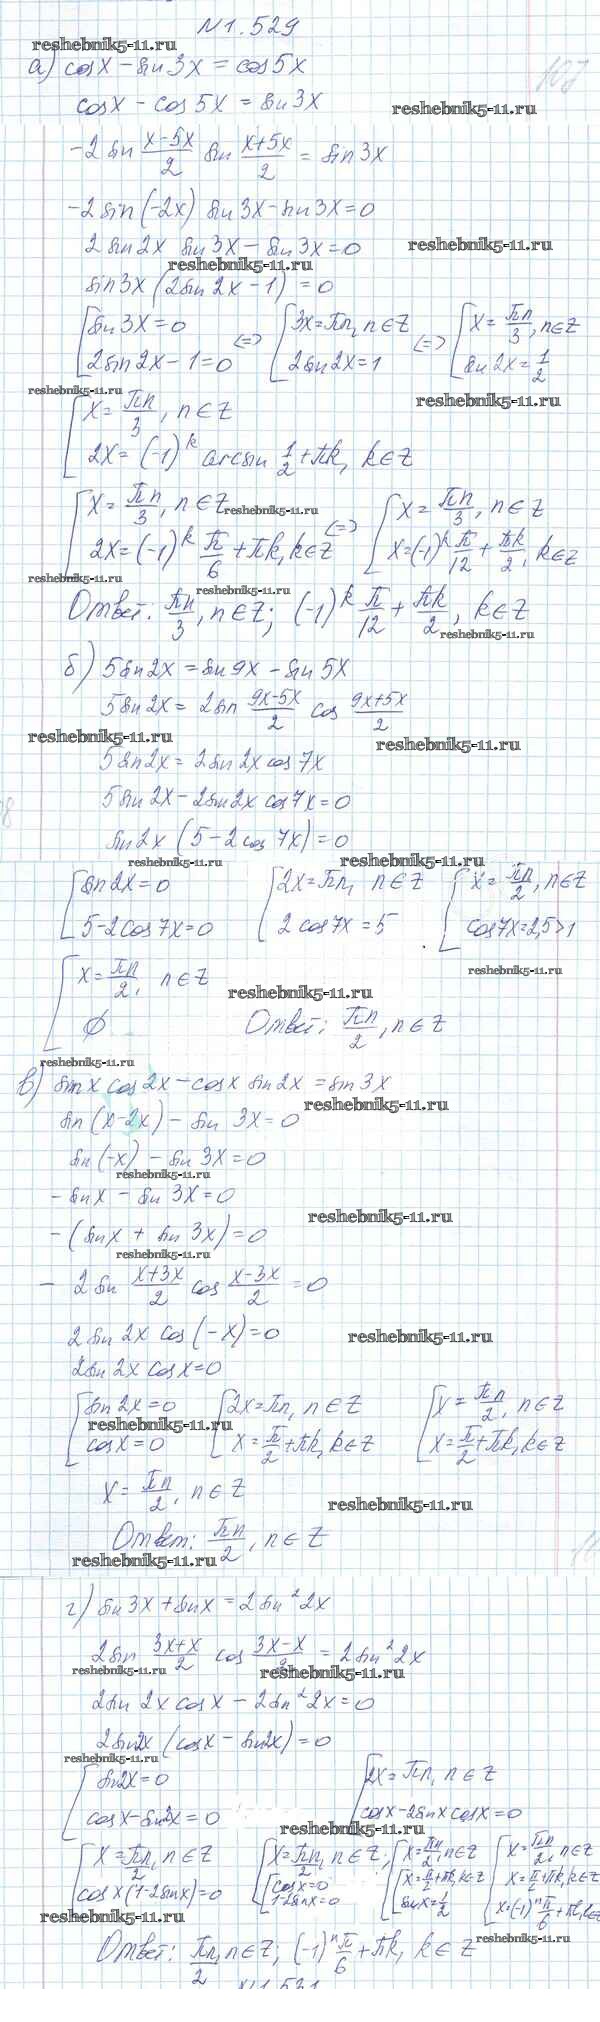 N1.529
reshebnik5-11.ru
а) cosx - sin3x = cos5x
cosx - cos5x = sin3x
reshebnik5-11.ru
-2sin (x-5x)/2 sin (x+5x)/2 = sin3x
-2sin(-2x) sin3x - sin3x = 0
2sin2x sin3x - sin3x = 0
reshebnik5-11.ru
reshebnik5-11.ru
sin3x (2sin2x - 1) = 0
[ sin3x = 0 <=> [ 3x = πn, n∈Z <=> [ x = πn/3, n∈Z
2sin2x - 1 = 0 2sin2x = 1 sin2x = 1/2
reshebnik5-11.ru
reshebnik5-11.ru
[ x = πn/3, n∈Z
2x = (-1)^k arcsin 1/2 + πk, k∈Z
[ x = πn/3, n∈Z reshebnik5-11.ru [ x = πn/3, n∈Z
2x = (-1)^k π/6 + πk, k∈Z <=> x = (-1)^k π/12 + πk/2, k∈Z
reshebnik5-11.ru
reshebnik5-11.ru
Ответ: πn/3, n∈Z; (-1)^k π/12 + πk/2, k∈Z
reshebnik5-11.ru
б) 5sin2x = sin9x - sin5x
5sin2x = 2sin (9x-5x)/2 cos (9x+5x)/2
reshebnik5-11.ru
reshebnik5-11.ru
5sin2x = 2sin2x cos7x
5sin2x - 2sin2x cos7x = 0
sin2x (5 - 2cos7x) = 0
reshebnik5-11.ru
reshebnik5-11.ru
[ sin2x = 0 [ 2x = πn, n∈Z [ x = πn/2, n∈Z
5 - 2cos7x = 0 2cos7x = 5 cos7x = 2,5>1
reshebnik5-11.ru
[ x = πn/2, n∈Z
reshebnik5-11.ru
∅ Ответ: πn/2, n∈Z
reshebnik5-11.ru
в) sinx cos2x - cosx sin2x = sin3x
reshebnik5-11.ru
sin(x-2x) - sin3x = 0
sin(-x) - sin3x = 0
reshebnik5-11.ru
-sinx - sin3x = 0
reshebnik5-11.ru
-(sinx + sin3x) = 0
reshebnik5-11.ru
- 2sin (x+3x)/2 cos (x-3x)/2 = 0
2sin2x cos(-x) = 0
reshebnik5-11.ru
2sin2x cosx = 0
[ sin2x = 0 [ 2x = πn, n∈Z [ x = πn/2, n∈Z
reshebnik5-11.ru
cosx = 0 x = π/2 + πk, k∈Z x = π/2 + πk, k∈Z
x = πn/2, n∈Z
reshebnik5-11.ru
Ответ: πn/2, n∈Z
reshebnik5-11.ru
г) sin3x + sinx = 2sin²2x
2sin (3x+x)/2 cos (3x-x)/2 = 2sin²2x
reshebnik5-11.ru
reshebnik5-11.ru
2sin2x cosx - 2sin²2x = 0
2sin2x (cosx - sin2x) = 0
reshebnik5-11.ru
[ sin2x = 0 [ 2x = πn, n∈Z
cosx - sin2x = 0 cosx - 2sinx cosx = 0
reshebnik5-11.ru
[ x = πn/2, n∈Z [ x = πn/2, n∈Z; [ x = πn/2, n∈Z [ x = πn/2, n∈Z
cosx(1-2sinx) = 0 [ cosx = 0 [ x = π/2 + πk, k∈Z x = π/2 + πk, k∈Z
1-2sinx = 0 sinx = 1/2 x = (-1)^n π/6 + πk, k∈Z
reshebnik5-11.ru
reshebnik5-11.ru
Ответ: πn/2, n∈Z; (-1)^n π/6 + πk, k∈Z